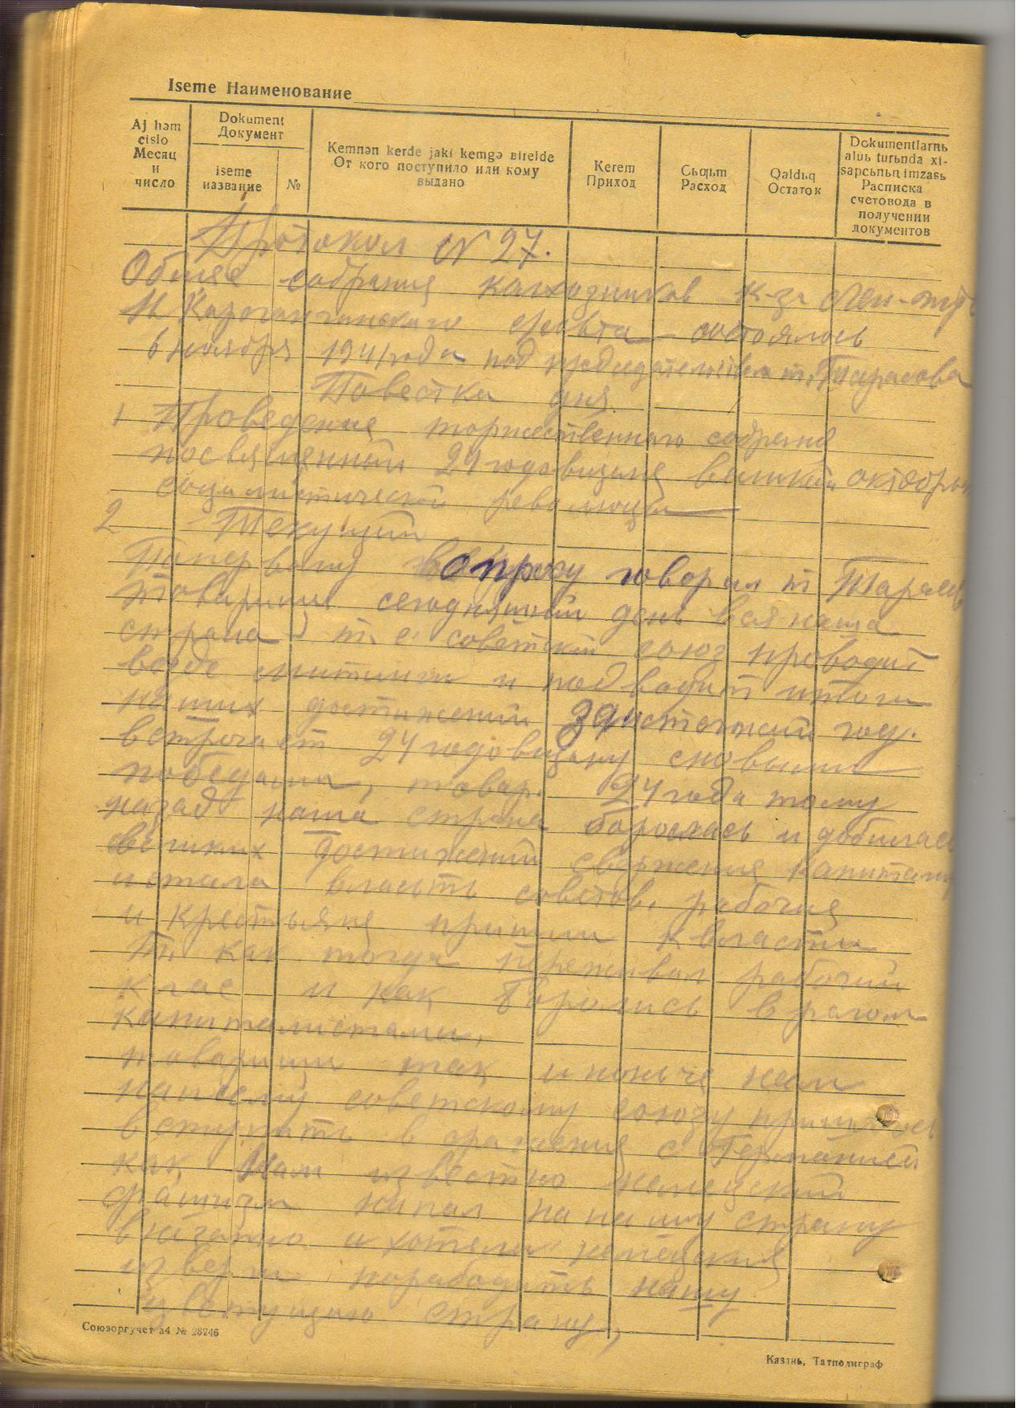 Iseme Наименование
Aj həm cislo Месяц и число
Dokument Документ
iseme название
№
Kemnən kerde jaki kemgə birelde
От кого поступило или кому выдано
Kerem Приход
Cьƣьm Расход
Qaldьq Остаток
Dokumentlarnь alub turьnda xisapcьnьn imzasь
Расписка счетовода в получении документов
Протокол № 27.
Общее собрания колхозников к-за
совета состоялось
6 ноября 1941 года под председательством т. Тарасова
Повестка дня
1 Проведение торжественного собрания
посвященный 24 годовщине великой октябрьс
социалистической революции
2 Текущий
По первому вопросу говорил т Тарасов
товарищи сегодняшний день вся наша
страна т. е. советский союз проводит
везде митинги и подводит итоги
наших достижений за истекший год.
встречает 24 годовщину с новыми
победами, товар. 24 года тому
назад наша страна боролась и добилась
великих достижений свержения капитали
и стала власть советов, рабочия
и крестьяне пришли к власти
Т. как тогда переживал рабочий
клас и как боролись врагом
капиталистами.
товарищи так и ноньче нам
нашему советскому союзу пришлось
вступить в сражения с Германией
как нам известно немецкий
фашизм напал на нашу страну
внезапно и хотели немецкия
изверги поработить нашу
цветущую страну,
Союзоргучет з4 № 28246
Казань, Татполиграф